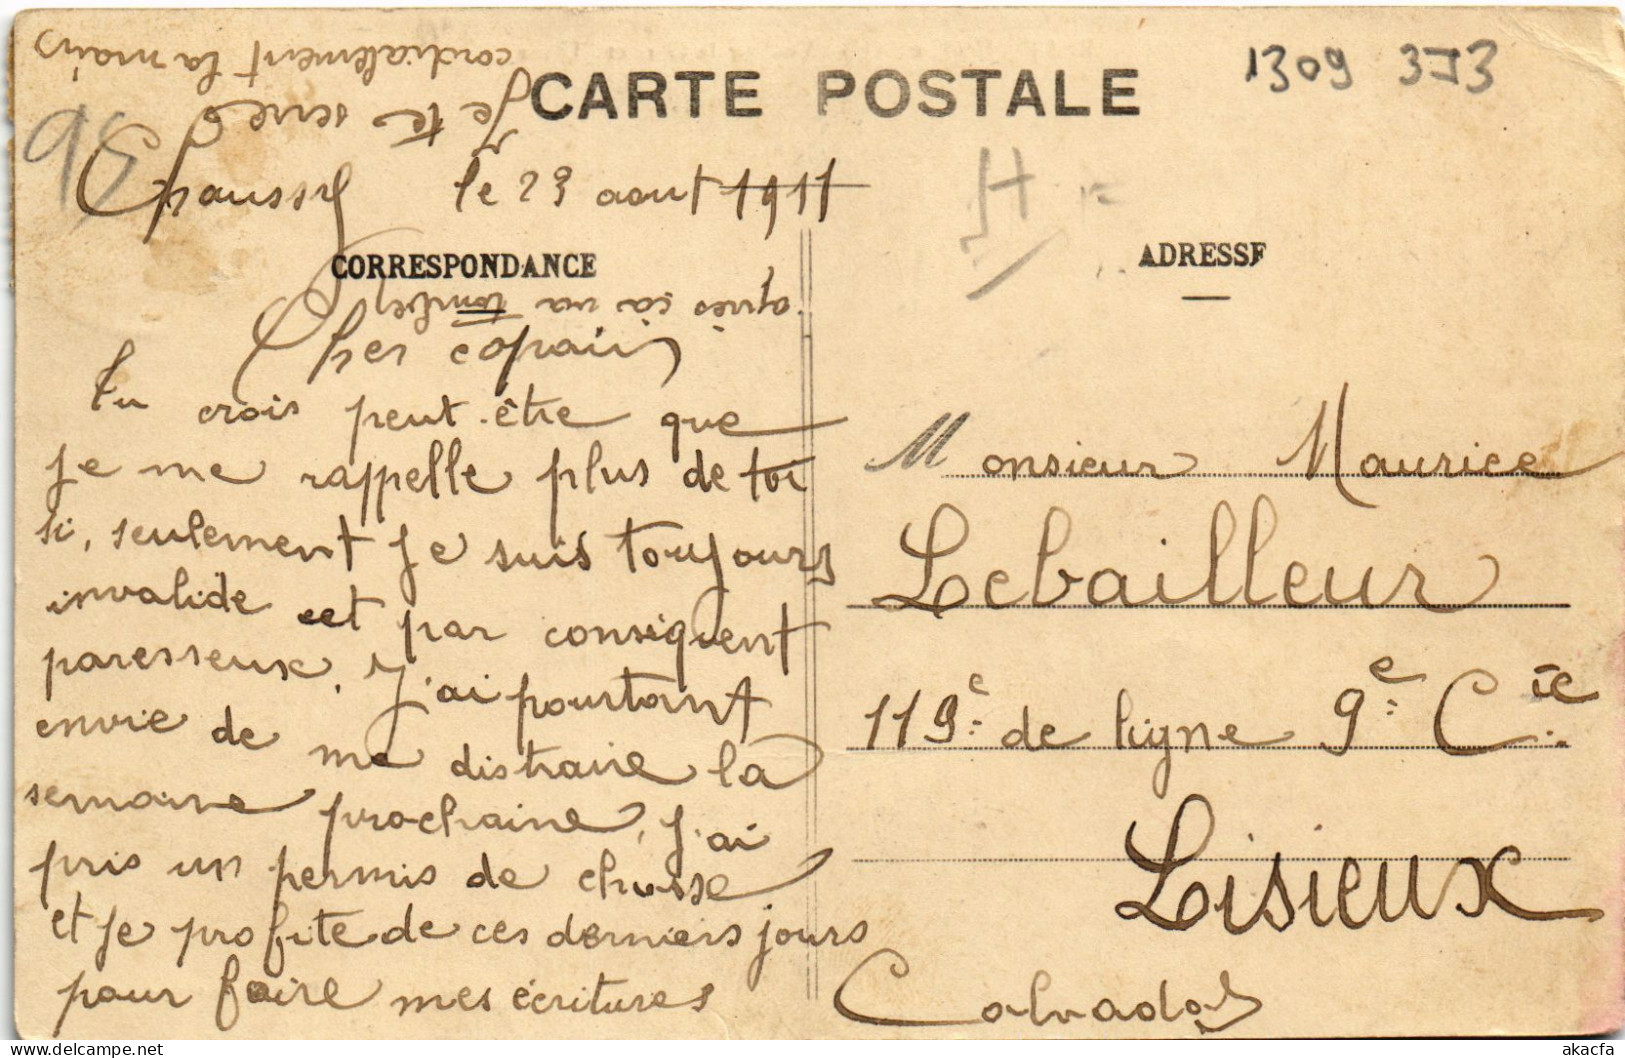 CARTE POSTALE
1309 373
95
H
le 23 aout 1911
CORRESPONDANCE
ADRESSE
Cher copain
Tu crois peut-être que
je me rappelle plus de toi
si, seulement je suis toujours
invalide et par conséquent
paresseux. J'ai pourtant
envie de me distraire la
semaine prochaine, j'ai
pris un permis de chasse
et je profite de ces derniers jours
pour faire mes écritures
après ça va tomber
Je te serre
cordialement la main
Monsieur Maurice
Lebailleur
119e de ligne 9e Cie
Lisieux
Calvados
akacfa